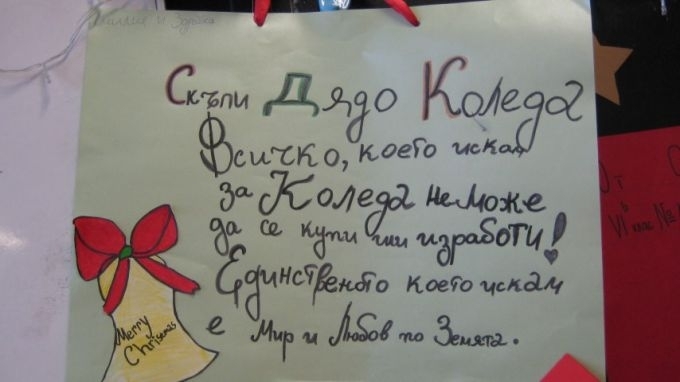 и Зорка
Скъпи Дядо Коледа
Всичко, което искам
за Коледа не може
да се купи или изработи!
Единственото което искам
е Мир и Любов по Земята.
Merry
Christmas
От
VI клас №